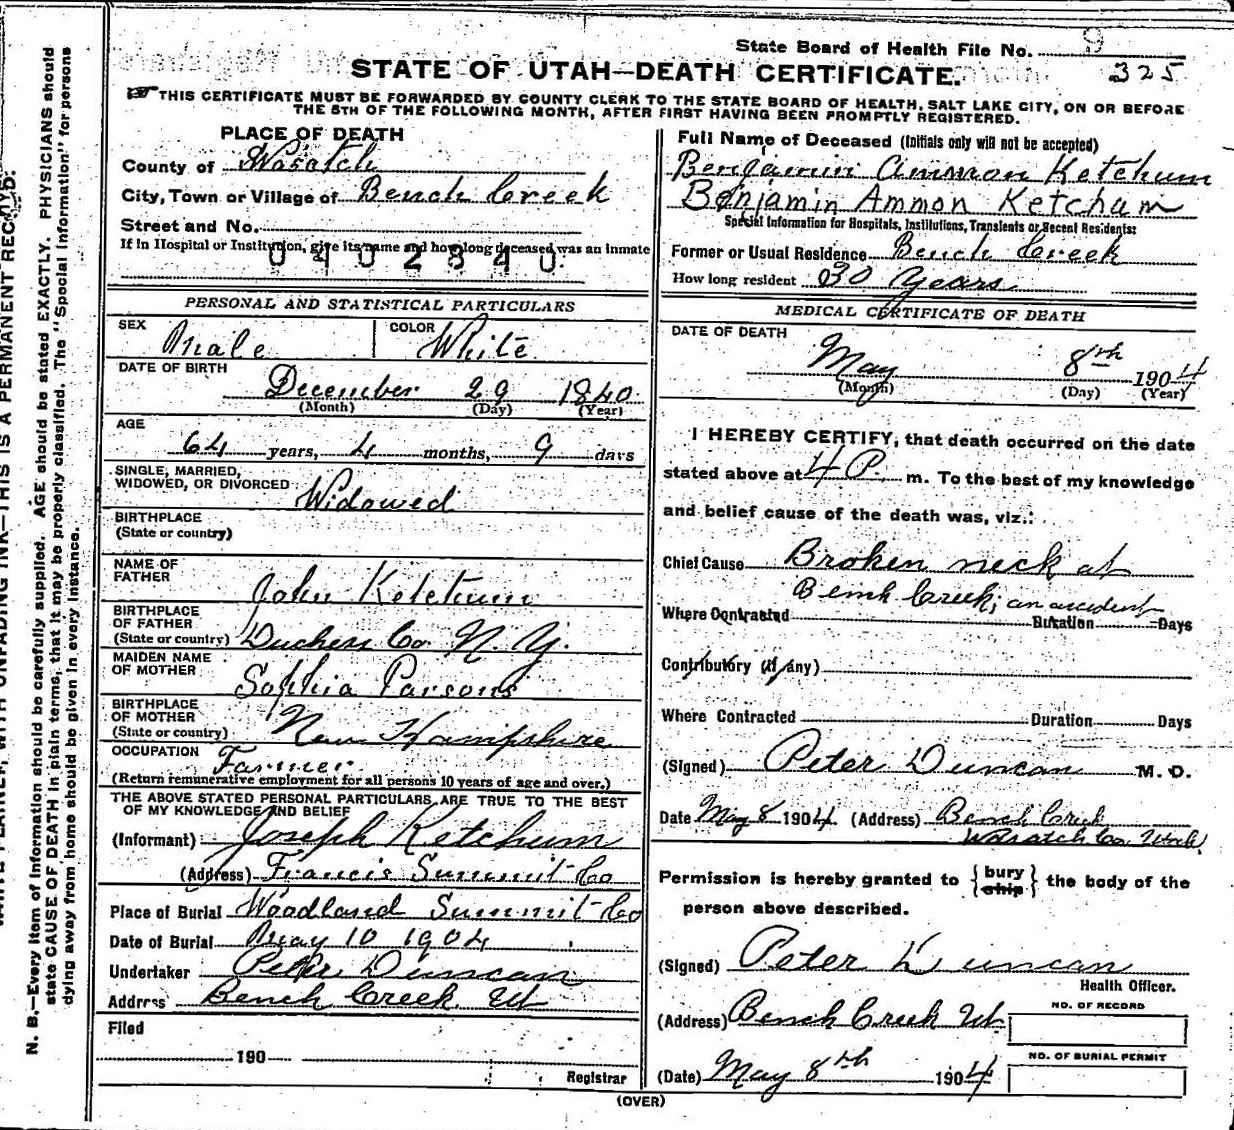 State Board of Health File No. 9
STATE OF UTAH—DEATH CERTIFICATE.
325
THIS CERTIFICATE MUST BE FORWARDED BY COUNTY CLERK TO THE STATE BOARD OF HEALTH, SALT LAKE CITY, ON OR BEFORE
THE 5TH OF THE FOLLOWING MONTH, AFTER FIRST HAVING BEEN PROMPTLY REGISTERED.
PLACE OF DEATH
County of Wasatch
City, Town or Village of Bench Creek
Street and No.
If in Hospital or Institution, give its name and how long deceased was an inmate
0402340
PERSONAL AND STATISTICAL PARTICULARS
SEX Male COLOR White
DATE OF BIRTH
December 29 1840
(Month) (Day) (Year)
AGE
64 years, 4 months, 9 days
SINGLE, MARRIED,
WIDOWED, OR DIVORCED Widowed
BIRTHPLACE
(State or country)
NAME OF
FATHER John Ketchum
BIRTHPLACE
OF FATHER
(State or country) Duchess Co N. Y.
MAIDEN NAME
OF MOTHER Sophia Parsons
BIRTHPLACE
OF MOTHER
(State or country) New Hampshire
OCCUPATION Farmer
(Return remunerative employment for all persons 10 years of age and over.)
THE ABOVE STATED PERSONAL PARTICULARS ARE TRUE TO THE BEST
OF MY KNOWLEDGE AND BELIEF
(Informant) Joseph Ketchum
(Address) Francis Summit Co
Place of Burial Woodland Summit Co
Date of Burial May 10 1904
Undertaker Peter Duncan
Address Bench Creek Ut
Filed
190
Registrar
Full Name of Deceased (Initials only will not be accepted)
Benjamin Ammron Ketchum
Benjamin Ammon Ketcham
Special Information for Hospitals, Institutions, Transients or Recent Residents:
Former or Usual Residence Bench Creek
How long resident 30 years
MEDICAL CERTIFICATE OF DEATH
DATE OF DEATH
May 8th 1904
(Month) (Day) (Year)
I HEREBY CERTIFY, that death occurred on the date
stated above at 4 P. m. To the best of my knowledge
and belief cause of the death was, viz.:
Chief Cause Broken neck at
Bench Creek; an accident
Where Contracted Duration Days
Contributory (if any)
Where Contracted Duration Days
(Signed) Peter Duncan M. D.
Date May 8 1904 (Address) Bench Creek
Wasatch Co. Utah
Permission is hereby granted to {bury
ship} the body of the
person above described.
(Signed) Peter Duncan
Health Officer.
(Address) Bench Creek Ut
NO. OF RECORD
NO. OF BURIAL PERMIT
(Date) May 8th 1904
(OVER)
N. B.—Every item of information should be carefully supplied. AGE should be stated EXACTLY. PHYSICIANS should
state CAUSE OF DEATH in plain terms, that it may be properly classified. The "Special Information" for persons
dying away from home should be given in every instance.
WITH UNFADING INK—THIS IS A PERMANENT RECORD.